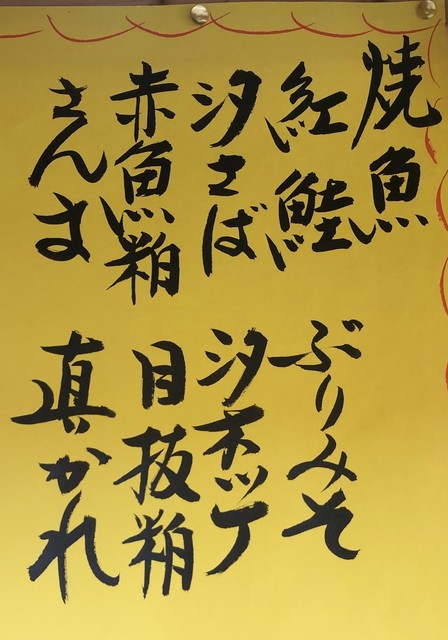 焼魚
紅鮭
汐さば
赤魚粕
さんま
ぶりみそ
汐ホッケ
目抜粕
真かれ